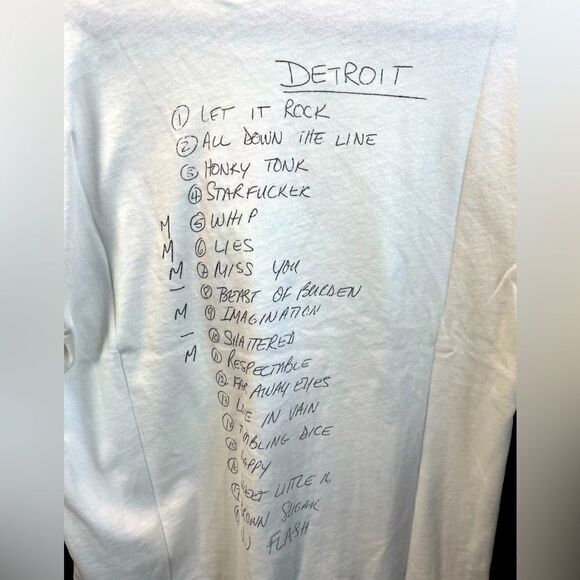 DETROIT
① LET IT ROCK
② ALL DOWN THE LINE
③ HONKY TONK
④ STARFUCKER
M ⑤ WHIP
M ⑥ LIES
M ⑦ MISS YOU
– ⑧ BEAST OF BURDEN
M ⑨ IMAGINATION
– ⑩ SHATTERED
M ⑪ RESPECTABLE
⑫ FAR AWAY EYES
⑬ LIE IN VAIN
⑭ TUMBLING DICE
⑮ APPY
LITTLE 16
OWN SUGAR
FLASH